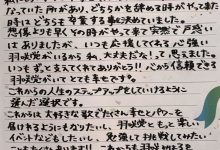 らいた所があり、どちらかを辞める時がやってきた
時はどちらも卒業する事に決めていました。
想像よりも早くその時がやって来て突然で戸惑い
はありましたが、いつも応援してくれる心強い
羽咲党がいるから私、大丈夫だな!って思えました。
いつもずっと支えてくれてありがとう!!心から信頼できる
羽咲党がいてとても幸せです。
これからの人生のステップアップをしていけるように
選んだ選択です。
これからは大好きな歌でたくさん幸せとパワーを
届けれるようにもなりたいし、羽咲党ともっと楽しい
イベントなどもしたいし、勉強して挑戦してみたい